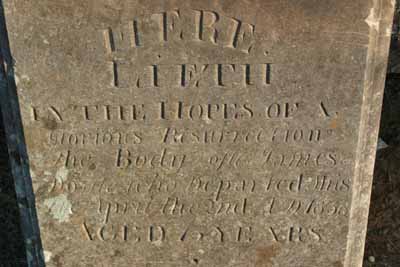 HERE
LIETH
IN THE HOPES OF A
Glorious Resurrection
the Body of James
who Departed this
April the 2nd AD
AGED YEARS